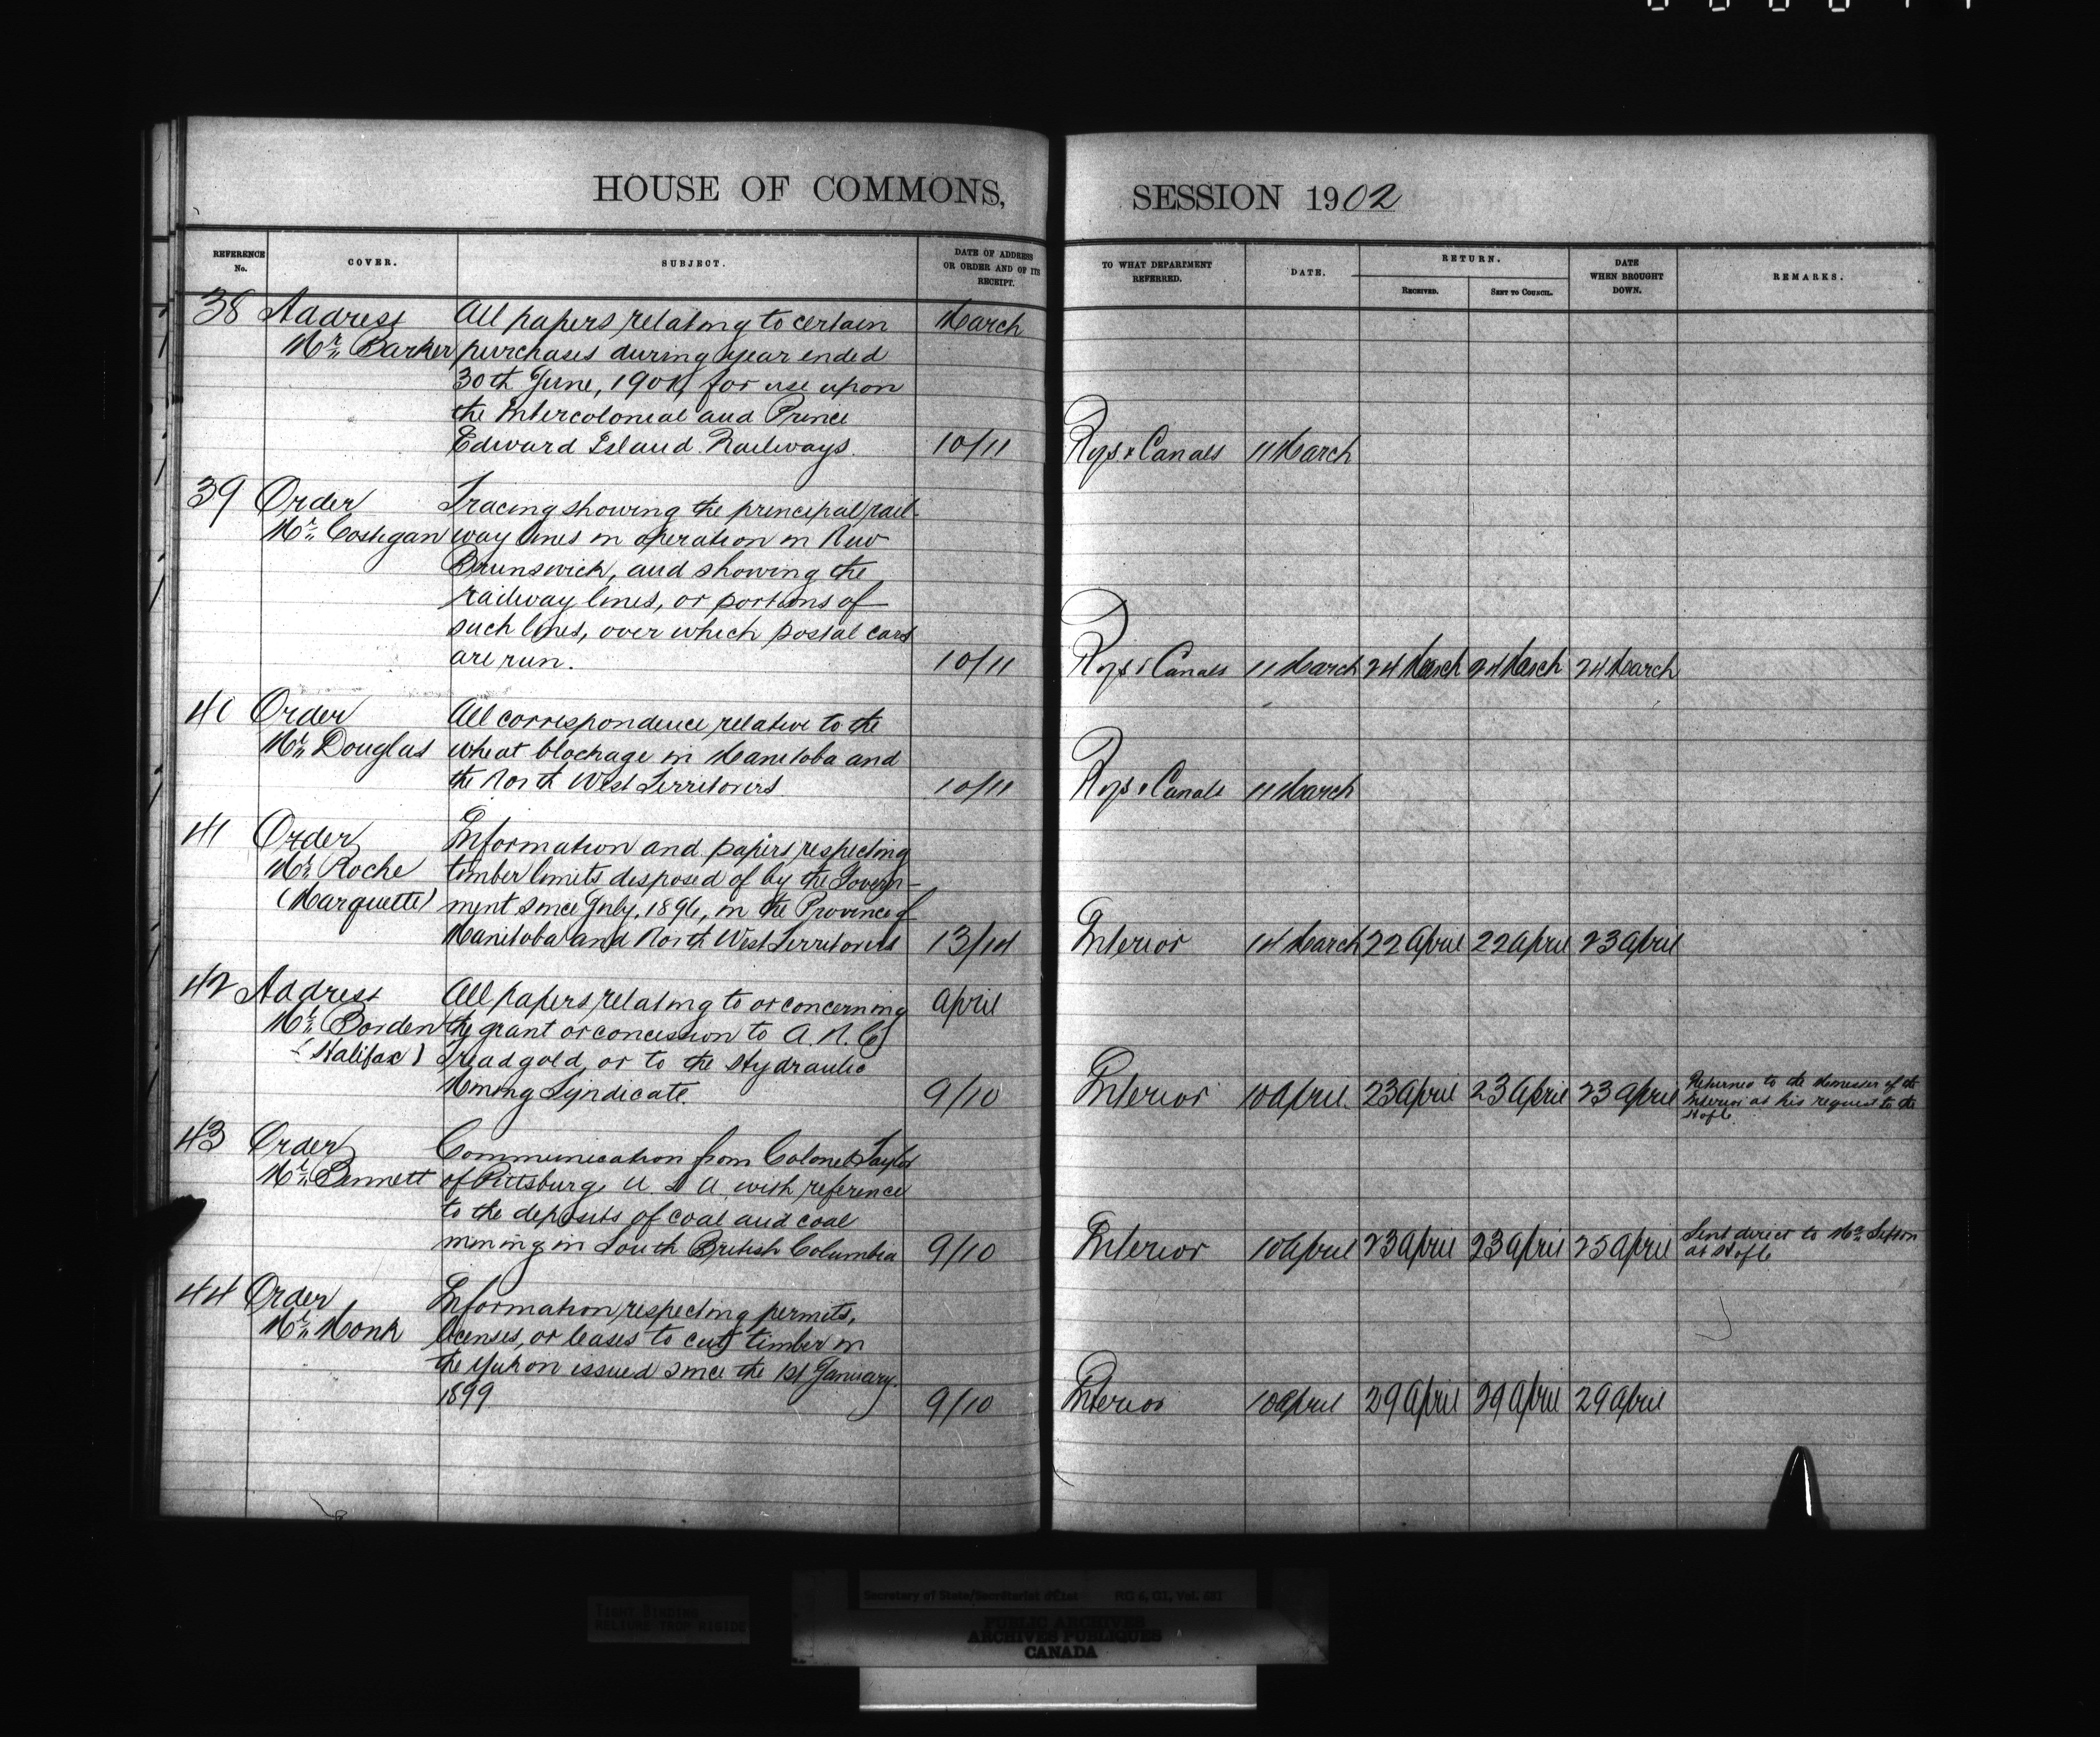 HOUSE OF COMMONS,
REFERENCE No.
COVER.
SUBJECT.
DATE OF ADDRESS OR ORDER AND OF ITS RECEIPT.
38 Address All papers relating to certain March
Mr. Barker purchases during year ended
30th June, 1901, for use upon
the Intercolonial and Prince
Edward Island Railways. 10/11
39 Order Tracing showing the principal rail-
Mr. Costigan way lines in operation in New
Brunswick, and showing the
railway lines, or portions of
such lines, over which postal cars
are run. 10/11
40 Order All correspondence relative to the
Mr. Douglas wheat blockage in Manitoba and
the North West Territories 10/11
41 Order Information and papers respecting
Mr. Roche timber limits disposed of by the Govern-
(Marquette) ment since July, 1896, in the Province of
Manitoba and North West Territories 13/14
42 Address All papers relating to or concerning April
Mr. Borden the grant or concession to A. N. C.
(Halifax) Treadgold, or to the Hydraulic
Mining Syndicate. 9/10
43 Order Communication from Colonel Taylor
Mr. Bennett of Pittsburg, U. S. A. with reference
to the deposits of coal and coal
mining in South British Columbia 9/10
44 Order Information respecting permits,
Mr. Monk licenses, or leases to cut timber in
the Yukon issued since the 1st January
1899 9/10
SESSION 1902
TO WHAT DEPARTMENT REFERRED.
DATE.
RETURN.
RECEIVED.
SENT TO COUNCIL.
DATE WHEN BROUGHT DOWN.
REMARKS.
Rys & Canals 11 March
Rys & Canals 11 March 24 March 24 March 24 March
Rys & Canals 11 March
Interior 14 March 22 April 22 April 23 April
Interior 10 April. 23 April 23 April 23 April Returned to the Minister of the
Interior at his request to the
H of C.
Interior 10 April 23 April 23 April 25 April Sent direct to Mr. Sifton
at H of C.
Interior 10 April 29 April 29 April 29 April
Secretary of State/Secrétariat d'État RG 6, G1, Vol.
TIGHT BINDING
RELIURE TROP RIGIDE
PUBLIC ARCHIVES
ARCHIVES PUBLIQUES
CANADA